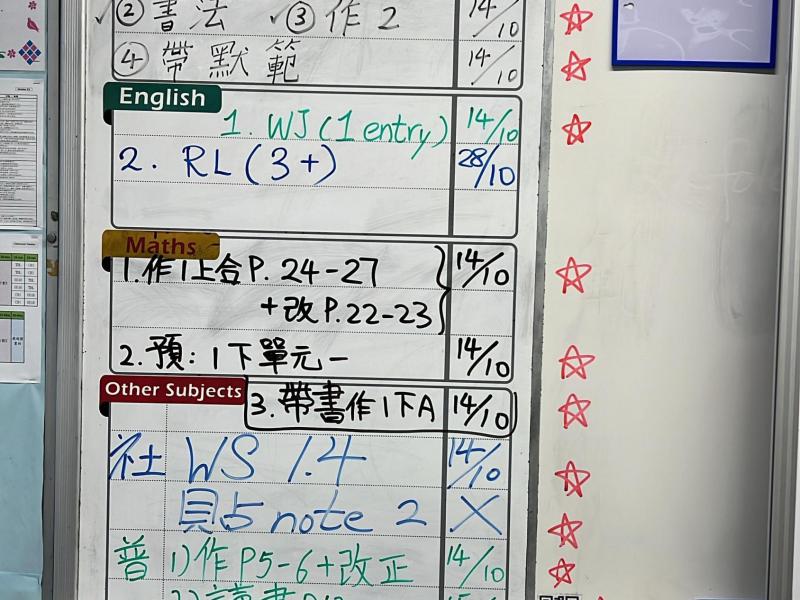 ✓② 書法 ✓③ 作2 14/10
④ 帶默範 14/10
English
1. WJ (1 entry) 14/10
2. RL (3+) 28/10
Maths
1. 作1上合P. 24-27 14/10
+改P. 22-23
2. 預: 1下單元一 14/10
Other Subjects
3. 帶書作1下A 14/10
社 WS 1.4 14/10
貼 note 2 X
普 1) 作P5-6+改正 14/10